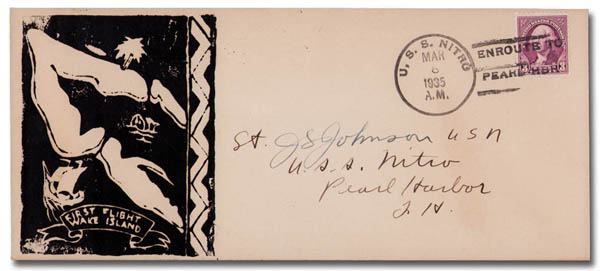 FIRST FLIGHT
WAKE ISLAND
U. S. S. NITRO
MAR
6
1935
A.M.
ENROUTE TO
PEARL HBR.
3
St. J S Johnson U S N
U. S. S. Nitro
Pearl Harbor
T. H.